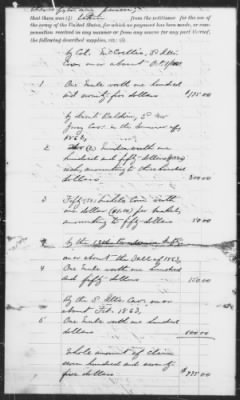 that there was (5) taken from the petitioner for the use of
the army of the United States, for which no payment has been made, or com-
pensation received in any manner or from any source for any part thereof,
the following described supplies, viz:
by Col. 5th Ills
Cav. on or about
1 One Mule worth one hundred
and seventy five dollars $175.00
by Lieut Baldwin, 5th
Cav in the Summer of
1863,
2 Two (2) Mules worth one
hundred and fifty dollars
each, amounting to three hundred
dollars 300.00
3 Fifty (50) bushels Corn worth
one dollar ($1.00) per bushel,
amounting to fifty dollars 50.00
by the
on or about the Fall of 1863,
4 One Mule worth one hundred
and fifty dollars 150.00
By the 5th Ills. Cav. on or
about Feb. 1863,
5 One Mule worth one hundred
dollars 100.00
Whole amount of Claim
seven hundred and seventy
five dollars $775.00